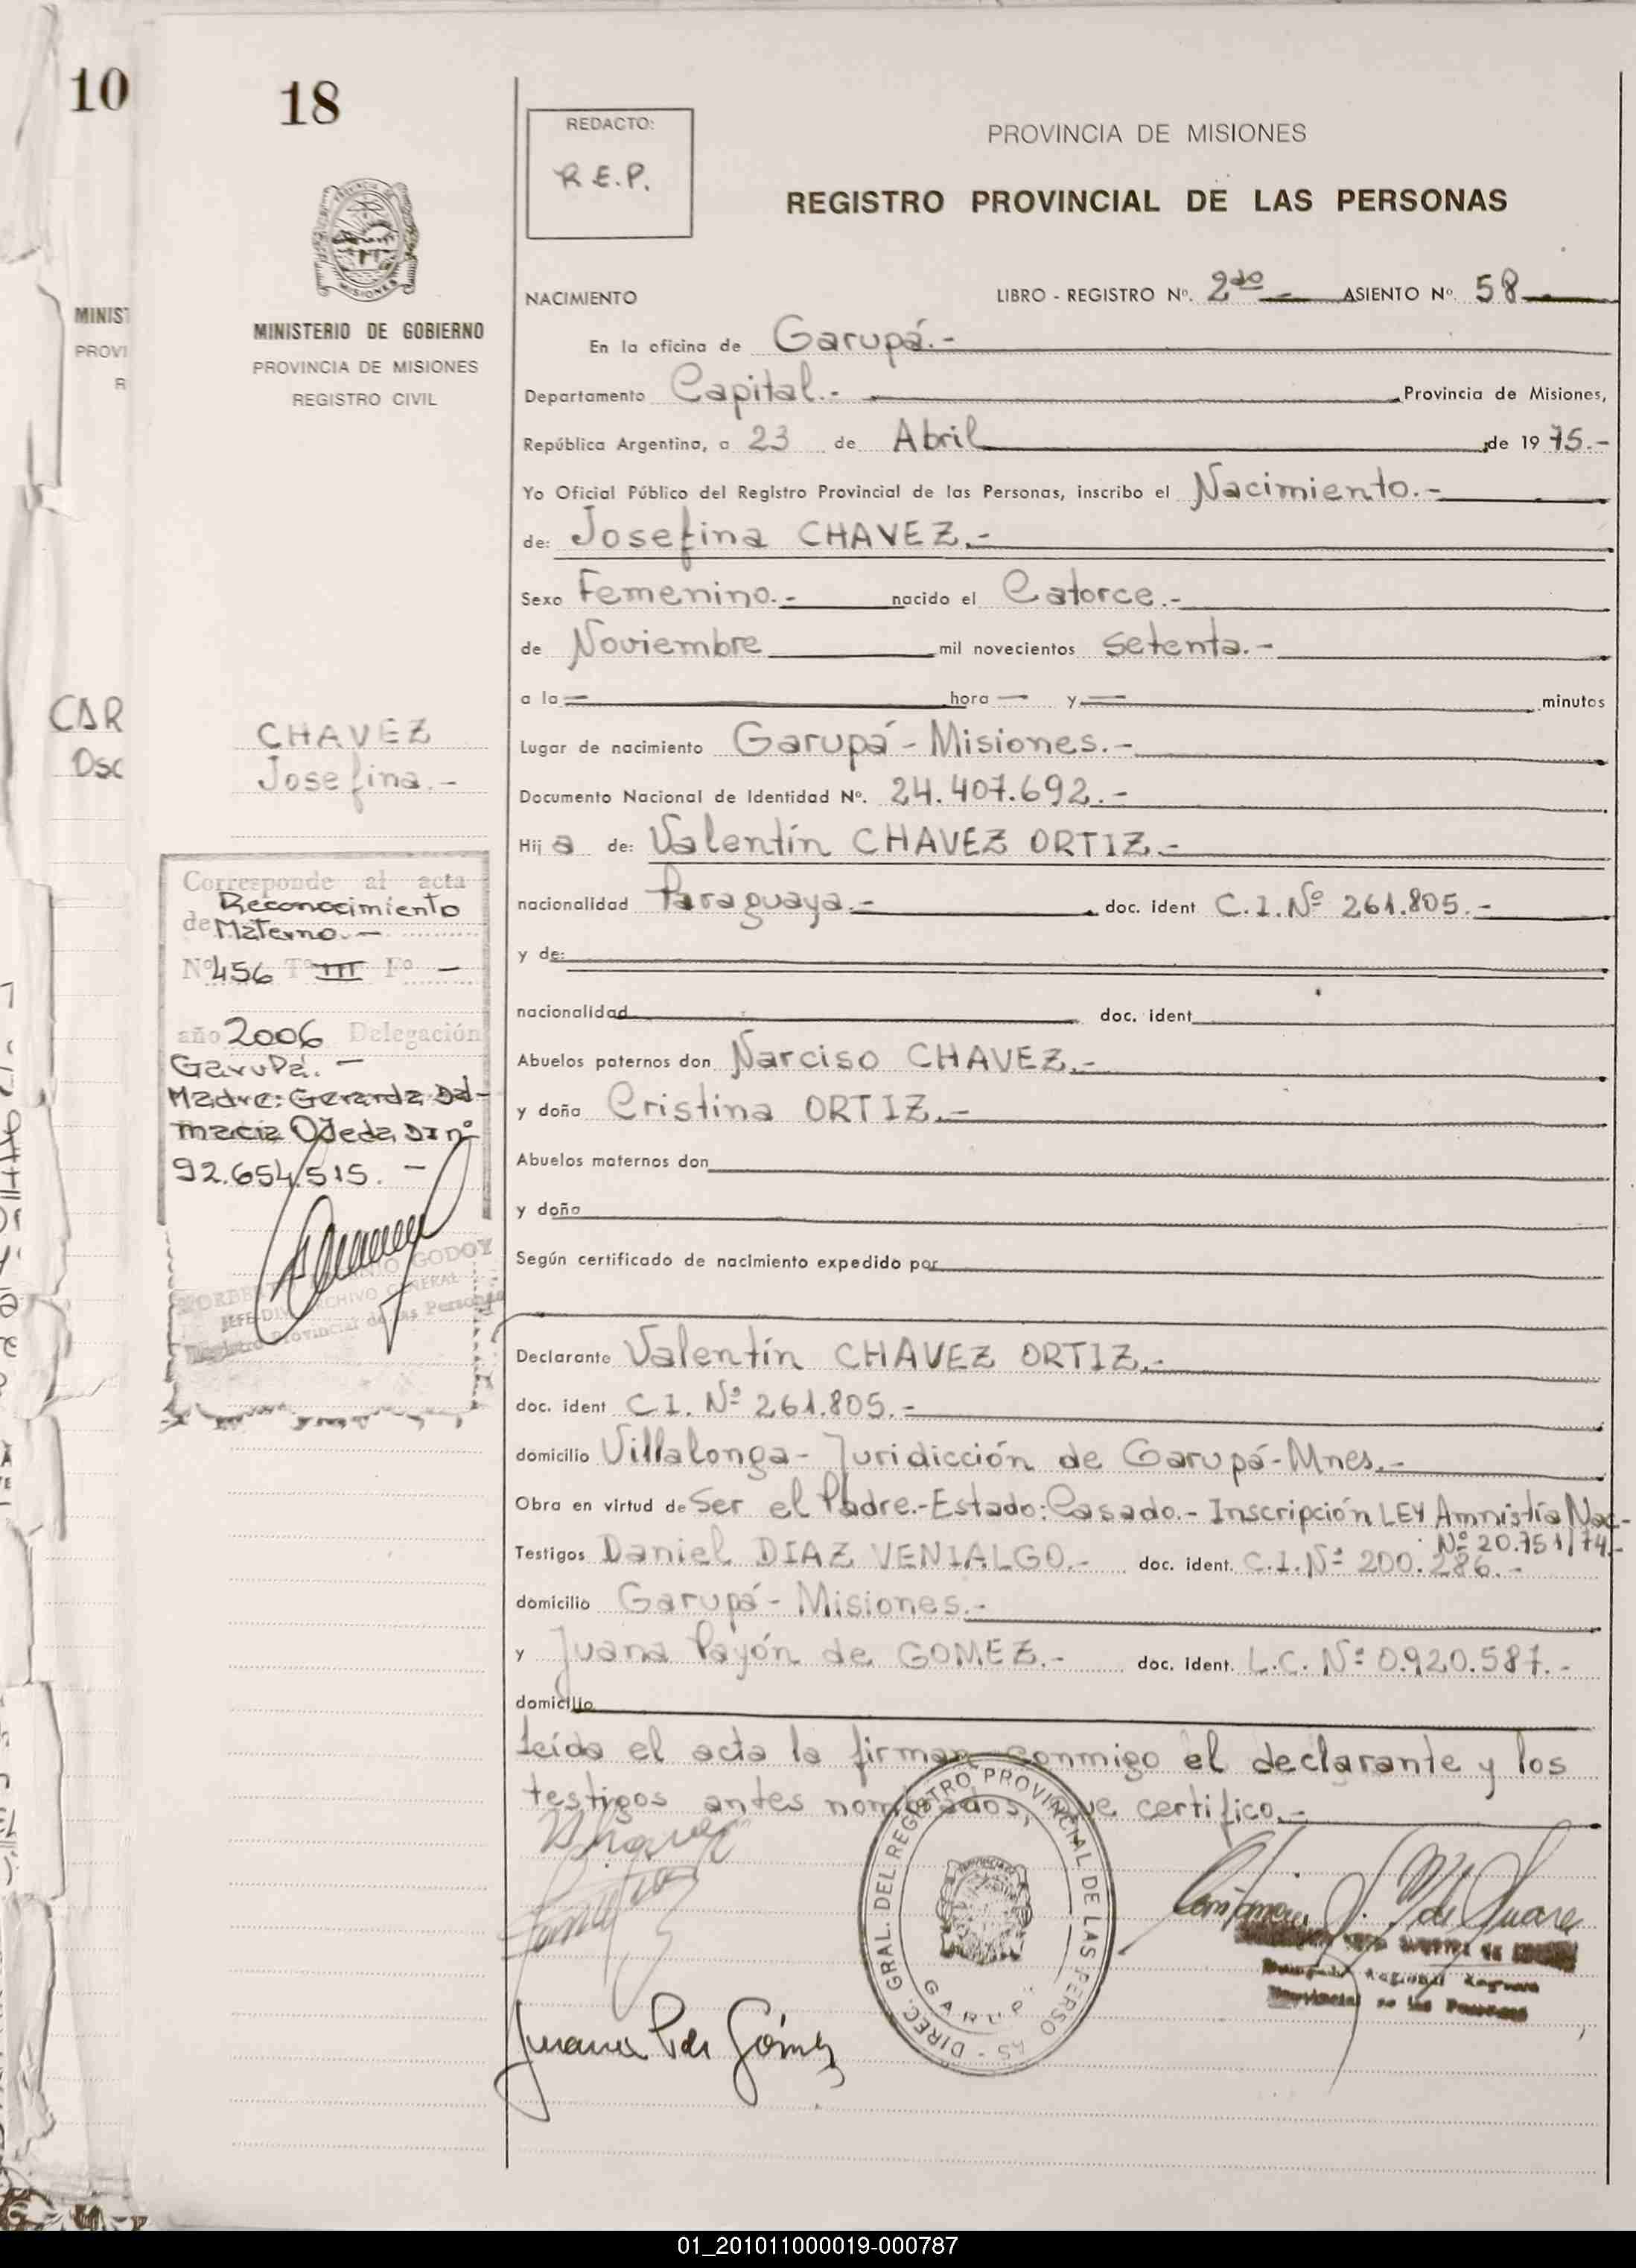 10
18
MINIST
PROVI
R
CAR
Osc
MINISTERIO DE GOBIERNO
PROVINCIA DE MISIONES
REGISTRO CIVIL
CHAVEZ
Josefina.-
Corresponde al acta
Reconocimiento
de Materno.-
Nº 456 Tº III Fº -
año 2006 Delegación
Garupá.-
Madre: Gerarda Dal-
macia Ojeda DI nº
92.654.515.-
GODOY
JEFE DIV. ARCHIVO GENERAL
Registro Provincial de las Personas
REDACTO:
R.E.P.
PROVINCIA DE MISIONES
REGISTRO PROVINCIAL DE LAS PERSONAS
NACIMIENTO LIBRO - REGISTRO Nº. 2do - ASIENTO Nº 58
En la oficina de Garupá.-
Departamento Capital.- Provincia de Misiones,
República Argentina, a 23 de Abril de 1975.-
Yo Oficial Público del Registro Provincial de las Personas, inscribo el Nacimiento.-
de: Josefina CHAVEZ.-
Sexo Femenino.- nacido el Catorce.-
de Noviembre mil novecientos setenta.-
a la — hora — y — minutos
Lugar de nacimiento Garupá - Misiones.-
Documento Nacional de Identidad Nº. 24.407.692.-
Hija de: Valentín CHAVEZ ORTIZ.-
nacionalidad Paraguaya.- doc. ident C.I.Nº 261.805.-
y de:
nacionalidad doc. ident
Abuelos paternos don Narciso CHAVEZ.-
y doña Cristina ORTIZ.-
Abuelos maternos don
y doña
Según certificado de nacimiento expedido por
Declarante Valentín CHAVEZ ORTIZ.-
doc. ident C.I. Nº 261.805.-
domicilio Villalonga - Juridicción de Garupá - Mnes.-
Obra en virtud de Ser el Padre.- Estado: Casado.- Inscripción LEY Amnistía Nac-
Nº 20.751/74.-
Testigos Daniel DIAZ VENIALGO.- doc. ident. C.I.Nº 200.286.-
domicilio Garupá - Misiones.-
y Juana Payón de GOMEZ.- doc. ident. L.C. Nº 0.920.587.-
domicilio
Leída el acta la firman conmigo el declarante y los
testigos antes nombrados, que certifico.-
DIREC. GRAL. DEL REGISTRO PROVINCIAL DE LAS PERSONAS -
GARUPA
Juana P de Gómez
01_201011000019-000787